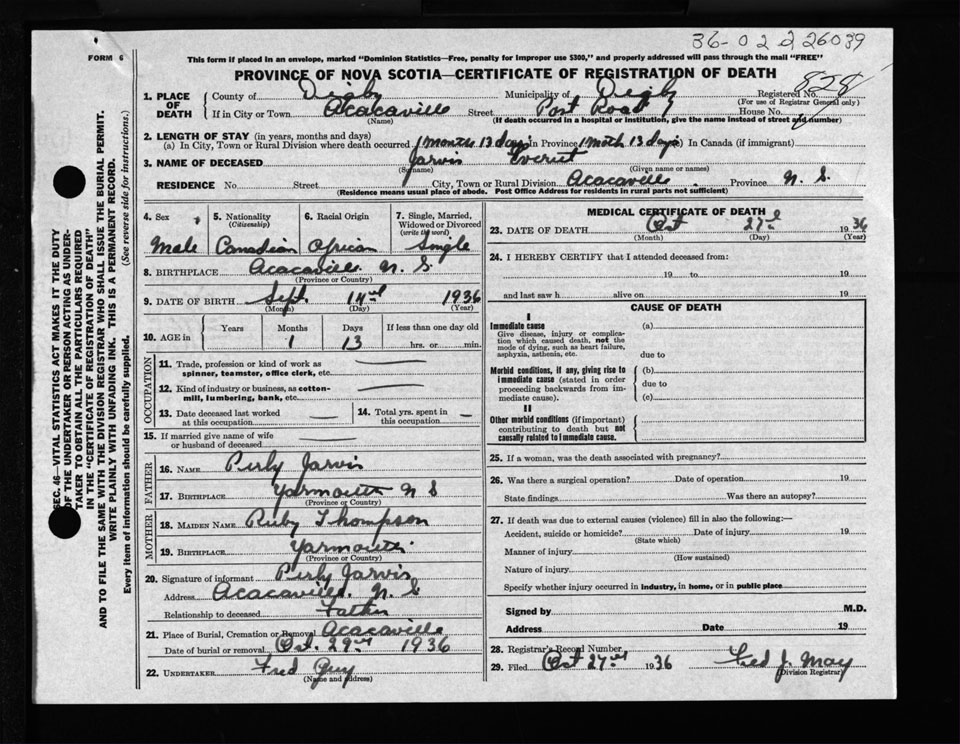 36-022 26039
FORM 6
This form if placed in an envelope, marked "Dominion Statistics—Free, penalty for improper use $300," and properly addressed will pass through the mail "FREE"
PROVINCE OF NOVA SCOTIA—CERTIFICATE OF REGISTRATION OF DEATH
SEC. 46—VITAL STATISTICS ACT MAKES IT THE DUTY
OF THE UNDERTAKER OR PERSON ACTING AS UNDER-
TAKER TO OBTAIN ALL THE PARTICULARS REQUIRED
IN THE "CERTIFICATE OF REGISTRATION OF DEATH"
AND TO FILE THE SAME WITH THE DIVISION REGISTRAR WHO SHALL ISSUE THE BURIAL PERMIT.
WRITE PLAINLY WITH UNFADING INK. THIS IS A PERMANENT RECORD.
Every item of information should be carefully supplied. (See reverse side for instructions.)
1. PLACE OF DEATH County of Digby Municipality of Digby Registered No. 828
(For use of Registrar General only)
If in City or Town Acacaville Street Post Road House No.
(Name) (If death occurred in a hospital or institution, give the name instead of street and number)
2. LENGTH OF STAY (in years, months and days)
(a) In City, Town or Rural Division where death occurred 1 months 13 days In Province 1 moth 13 days In Canada (if immigrant)
3. NAME OF DECEASED Jarvis Everet
(Surname) (Given name or names)
RESIDENCE No Street City, Town or Rural Division Acacaville Province N. S.
(Residence means usual place of abode. Post Office Address for residents in rural parts not sufficient)
4. Sex 5. Nationality (Citizenship) 6. Racial Origin 7. Single, Married, Widowed or Divorced (write the word)
Male Canadian African Single
8. BIRTHPLACE Acacaville N. S
(Province or Country)
9. DATE OF BIRTH Sept. 14 1936
(Month) (Day) (Year)
10. AGE in Years Months Days If less than one day old
1 13 hrs. or min.
OCCUPATION
11. Trade, profession or kind of work as
spinner, teamster, office clerk, etc.
12. Kind of industry or business, as cotton-
mill, lumbering, bank, etc.
13. Date deceased last worked at this occupation 14. Total yrs. spent in this occupation
15. If married give name of wife
or husband of deceased
FATHER
16. NAME Perly Jarvis
17. BIRTHPLACE Yarmouth N S
(Province or Country)
MOTHER
18. MAIDEN NAME Ruby Thompson
19. BIRTHPLACE Yarmouth
(Province or Country)
20. Signature of informant Perly Jarvis
Address Acacaville. N. S
Relationship to deceased Father
21. Place of Burial, Cremation or Removal Acacaville
Date of burial or removal Oct. 29 1936
22. UNDERTAKER Fred Guy
(Name and address)
MEDICAL CERTIFICATE OF DEATH
23. DATE OF DEATH Oct 27 1936
(Month) (Day) (Year)
24. I HEREBY CERTIFY that I attended deceased from:
19 to 19
and last saw h alive on 19
CAUSE OF DEATH
I
Immediate cause (a)
Give disease, injury or complica-
tion which caused death, not the
mode of dying, such as heart failure,
asphyxia, asthenia, etc. due to
Morbid conditions, if any, giving rise to (b)
immediate cause (stated in order due to
proceeding backwards from im-
mediate cause). (c)
II
Other morbid conditions (if important)
contributing to death but not
causally related to immediate cause.
25. If a woman, was the death associated with pregnancy?
26. Was there a surgical operation? Date of operation 19
State findings Was there an autopsy?
27. If death was due to external causes (violence) fill in also the following:—
Accident, suicide or homicide? Date of injury 19
(State which)
Manner of injury
(How sustained)
Nature of injury
Specify whether injury occurred in industry, in home, or in public place
Signed by M.D.
Address Date 19
28. Registrar's Record Number
29. Filed Oct 27 1936 Fred J. May
Division Registrar